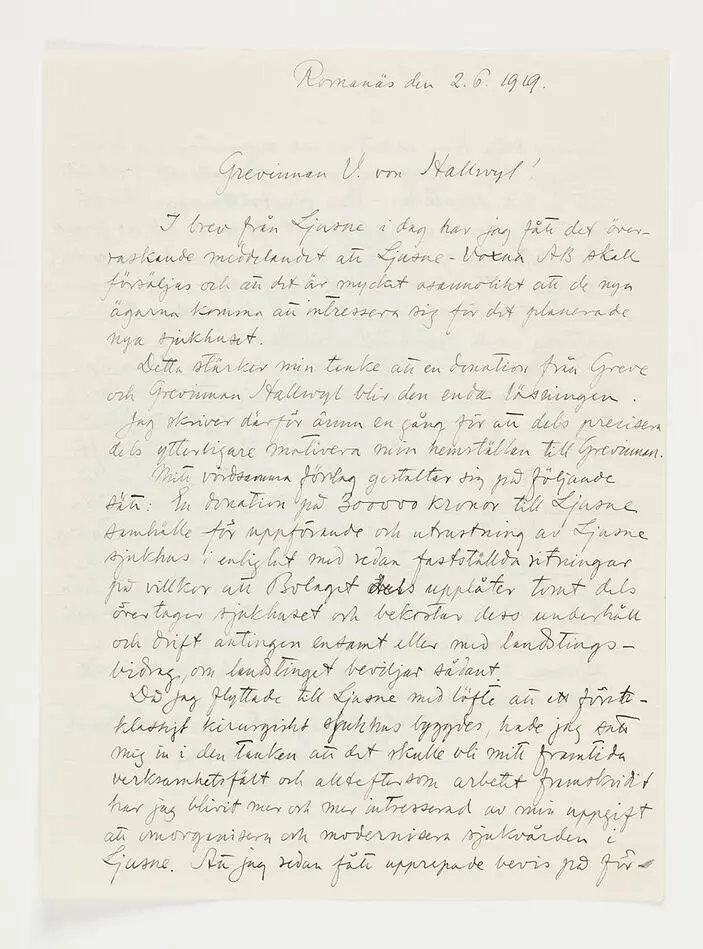 Romanäs den 2.6. 1919.
Grevinnan V. von Hallwyl!
I brev från Ljusne i dag har jag fått det över-
raskande meddelandet att Ljusne-Voxna AB skall
försäljas och att det är mycket osannolikt att de nya
ägarna komma att intressera sig för det planerade
nya sjukhuset.
Detta stärker min tanke att en donation från Greve
och Grevinnan Hallwyl blir den enda lösningen.
Jag skriver därför ännu en gång för att dels precisera
dels ytterligare motivera min hemställan till Grevinnan.
Mitt vördsamma förslag gestaltar sig på följande
sätt: En donation på 300000 kronor till Ljusne
samhälle för uppförande och utrustning av Ljusne
sjukhus i enlighet med redan fastställda ritningar
på villkor att Bolaget dels upplåter tomt dels
övertager sjukhuset och bekostar dess underhåll
och drift antingen ensamt eller med landstings-
bidrag, om landstinget beviljar sådant.
Då jag flyttade till Ljusne med löfte att ett första-
klassigt kirurgiskt sjukhus byggdes, hade jag satt
mig in i den tanken att det skulle bli mitt framtida
verksamhetsfält och allteftersom arbetet framskridit
har jag blivit mer och mer intresserad av min uppgift
att omorganisera och modernisera sjukvården i
Ljusne. Att jag sedan fått upprepade bevis på för-